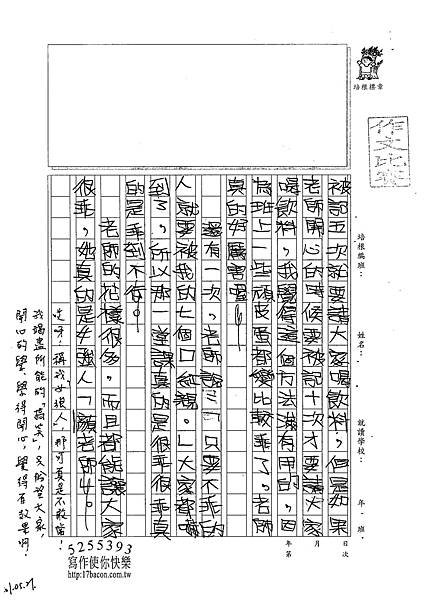 培根標章
作文比賽
培根編班：
姓名：
就讀學校：
年．班．
年　月　日
第　次
被記五次就要請大家喝飲料，但是如果
老師開心的時候要被記十次才要請大家
喝飲料，我覺得這個方法滿有用的，因
為班上一些頑皮蛋都變比較乖了。老師
真的好厲害喔！！
還有一次，老師說：「只要不乖的
人就要被我的七個口紅親。」大家都嚇
到了，所以那一堂課真的是很乖很乖真
的是乖到不行。
老師的花樣很多，而且都能讓大家
很乖，她真的是女強人「顏老師」。
哎呀！稱我「女強人」，那可真是不敢當！
我竭盡所能的「搞笑」，只盼望大家，
開心的學、學得開心，學得有效果啊！
5255393
寫作使你快樂
http://17bacon.com.tw